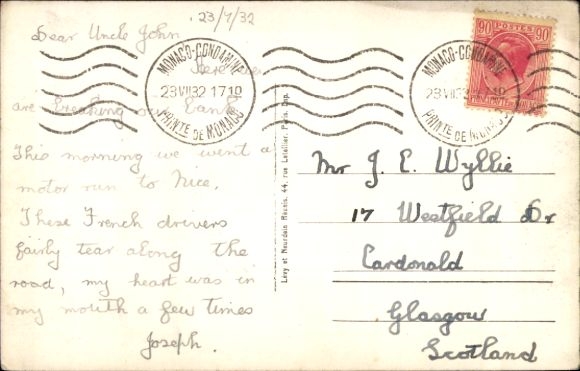 23/7/32
Dear Uncle John
Here we
are breaking our bank
This morning we went a
motor run to Nice.
These French drivers
fairly tear along the
road, my heart was in
my mouth a few times
Joseph.
MONACO-CONDAMINE
23 VII 32 17 10
PRINTÉ DE MONACO
MONACO-CONDAMINE
23 VII 32 17 10
PRINTÉ DE MONACO
90 POSTES 90
Lévy et Neurdein Réunis, 44, rue Letellier, Paris, Imp.
Mr J. E. Wyllie
17 Westfield Dr
Cardonald
Glasgow
Scotland